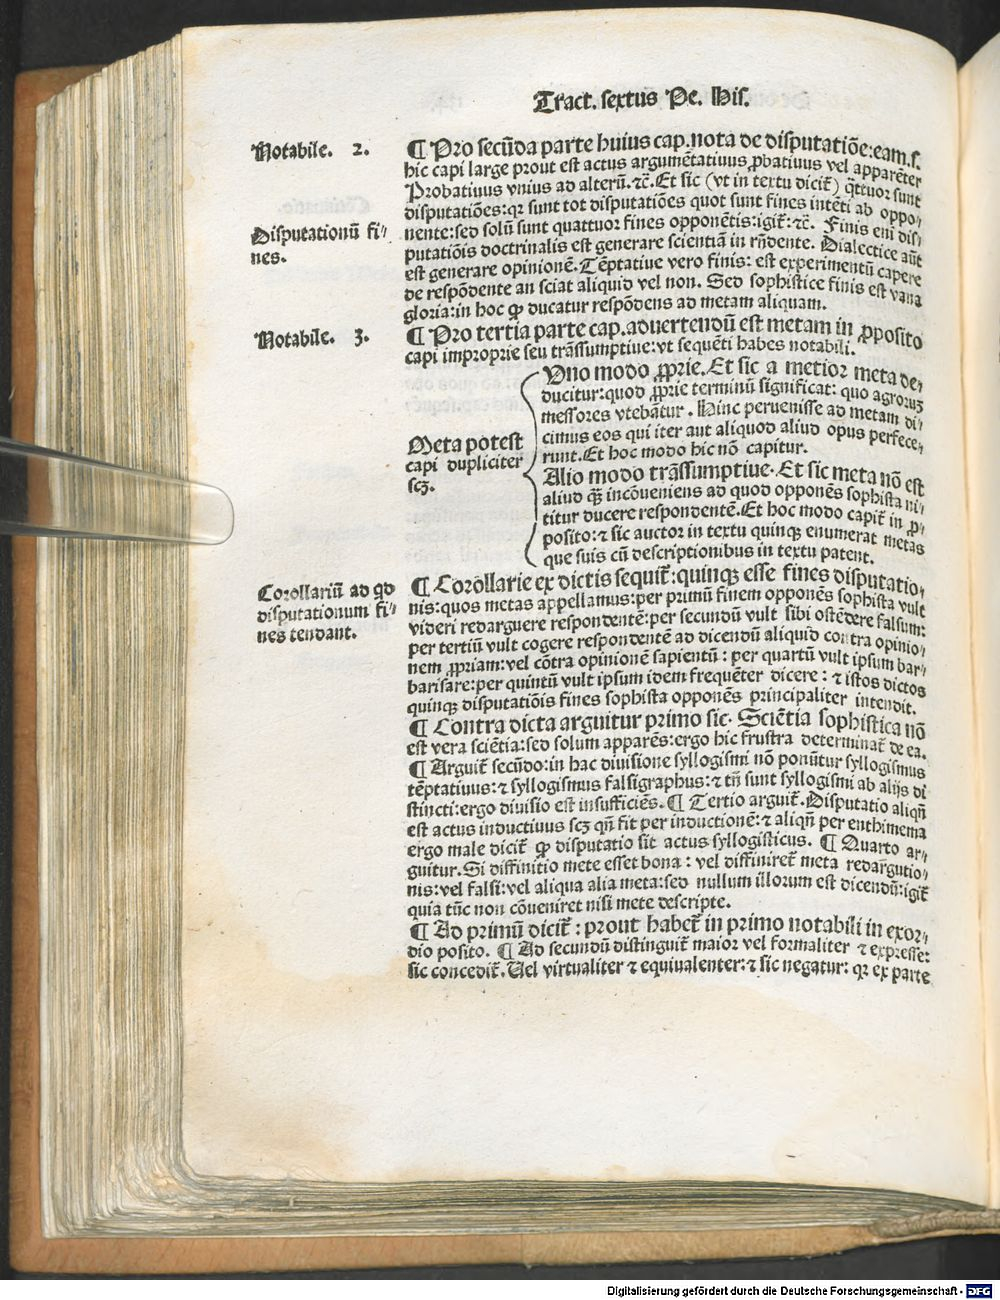 Tract. sextus Pe. His.
Notabile. 2.
¶ Pro secūda parte huius cap. nota de disputatiōe: eam .s.
hic capi large prout est actus argumētatiuus ꝓbatiuus vel apparēter
Probatiuus vnius ad alterū. ⁊c̄. Et sic (vt in textu dicit̄) q̄ttuor sunt
disputatiōes: qꝛ sunt tot disputatiōes quot sunt fines intēti ab oppo-
nente: sed solū sunt quattuor fines opponētis: igit̄: ⁊c̄. Finis eni dis-
Disputationū fi-
nes.
putatiōis doctrinalis est generare scientiā in rn̄dente. Dialectice aūt
est generare opinionē. Tēptatiue vero finis: est experimentū capere
de respōdente an sciat aliquid vel non. Sed sophistice finis est vana
gloria: in hoc ꝙ ducatur respōdens ad metam aliquam.
Notabile. 3.
¶ Pro tertia parte cap. aduertendū est metam in ꝓposito
capi improprie seu trāssumptiue: vt sequēti habes notabili.
Meta potest
capi dupliciter
scꝫ.
Uno modo ꝓprie. Et sic a metior meta de-
ducitur: quod ꝓprie terminū significat: quo agroruꝫ
messores vtebātur. Hinc peruenisse ad metam di-
cimus eos qui iter aut aliquod aliud opus perfece-
runt. Et hoc modo hic nō capitur.
Alio modo trāssumptiue. Et sic meta nō est
aliud q̄ꝫ incōueniens ad quod opponēs sophista ni-
titur ducere respondentē. Et hoc modo capit̄ in ꝓ-
posito: ⁊ sic auctor in textu quinqꝫ enumerat metas
que suis cū descriptionibus in textu patent.
Corollariū ad qd
disputationum fi-
nes tendant.
¶ Corollarie ex dictis sequit̄: quinqꝫ esse fines disputatio-
nis: quos metas appellamus: per primū finem opponēs sophista vult
videri redarguere respondentē: per secundū vult sibi ostēdere falsum:
per tertiū vult cogere respondentē ad dicendū aliquid contra opinio-
nem ꝓpriam: vel cōtra opinionē sapientū: per quartū vult ipsum bar-
barisare: per quintū vult ipsum idem frequēter dicere: ⁊ istos dictos
quinqꝫ disputatiōis fines sophista opponēs principaliter intendit.
¶ Contra dicta arguitur primo sic. Sciētia sophistica nō
est vera sciētia: sed solum apparēs: ergo hic frustra determinat̄ de ea.
¶ Arguit̄ secūdo: in hac diuisione syllogismi nō ponūtur syllogismus
tēptatiuus: ⁊ syllogismus falsigraphus: ⁊ tn̄ sunt syllogismi ab alijs di
stincti: ergo diuisio est insufficiēs. ¶ Tertio arguit̄. Disputatio aliqn̄
est actus inductiuus scꝫ qn̄ fit per inductionē: ⁊ aliqn̄ per enthimema
ergo male dicit̄ ꝙ disputatio sit actus syllogisticus. ¶ Quarto ar-
guitur. Si diffinitio mete esset bona: vel diffiniret̄ meta redargutio-
nis: vel falsi: vel aliqua alia meta: sed nullum illorum est dicendū: igit̄
quia tūc non cōueniret nisi mete descripte.
¶ Ad primū dicit̄: prout habet̄ in primo notabili in exor-
dio posito. ¶ Ad secundū distinguit̄ maior vel formaliter ⁊ expresse:
sic concedit̄. Uel virtualiter ⁊ equiualenter: ⁊ sic negatur: qꝛ ex parte
Digitalisierung gefördert durch die Deutsche Forschungsgemeinschaft - DFG